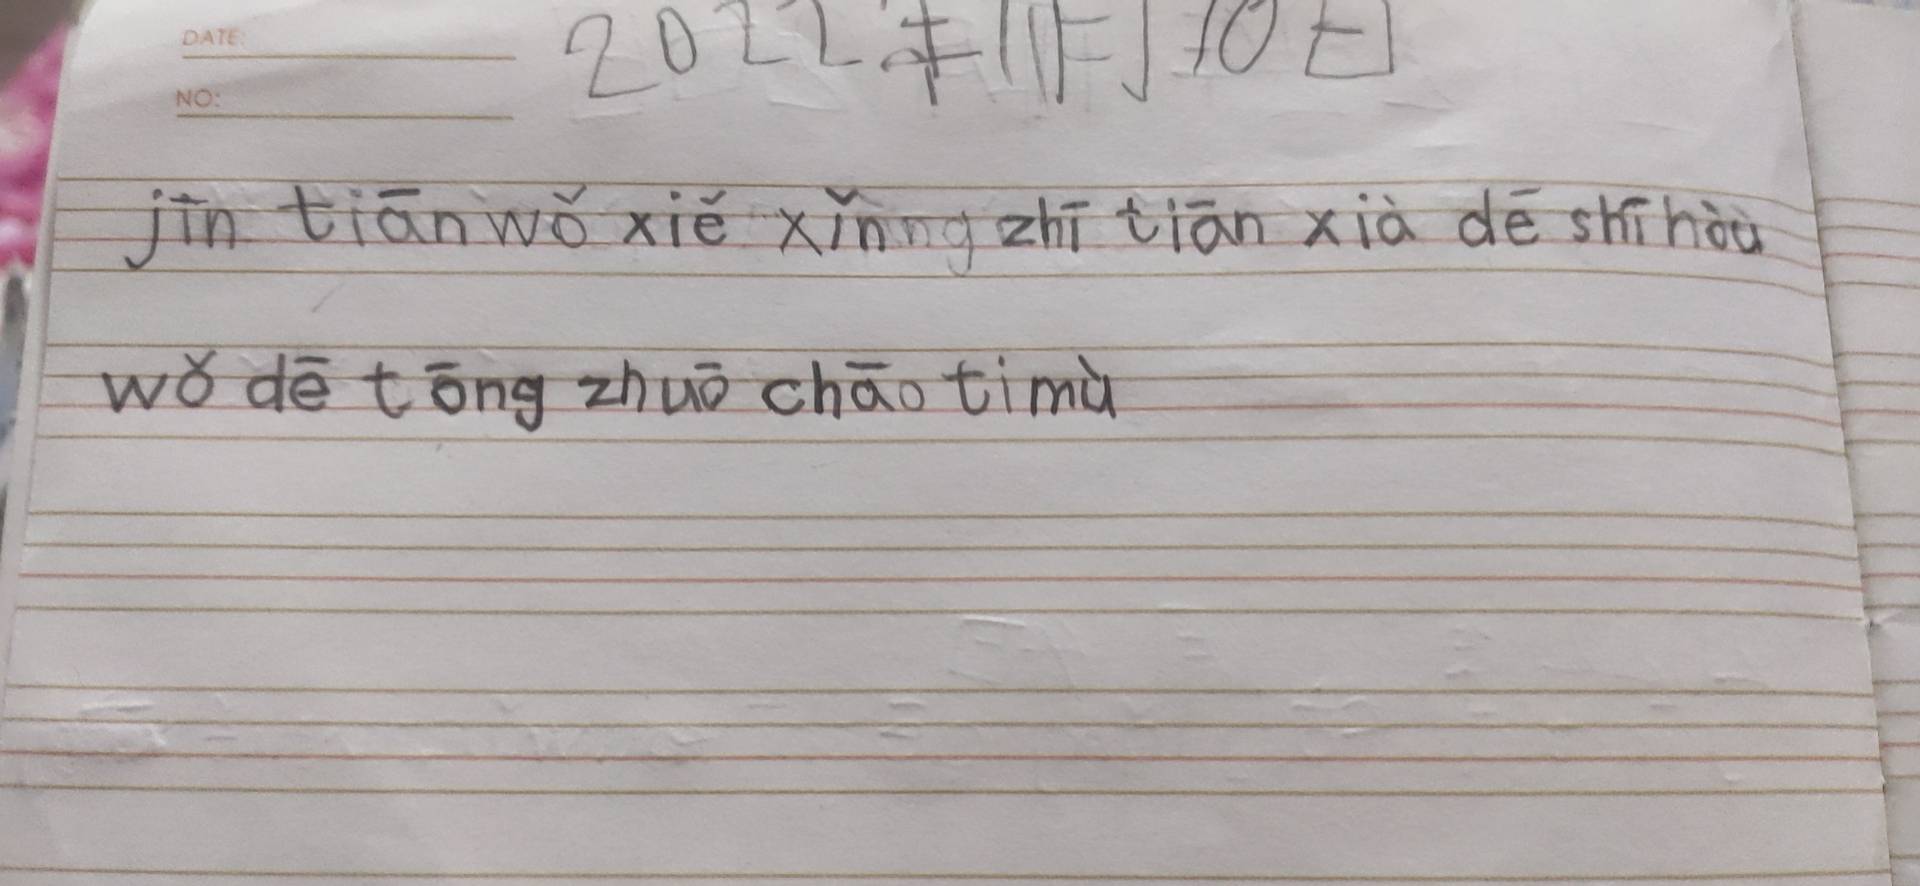 DATE:
NO:
2022年11月10日
jīn tiān wǒ xiě xǐnng zhī tiān xià dē shī hòu
wǒ dē tōng zhuō chāo ti mù